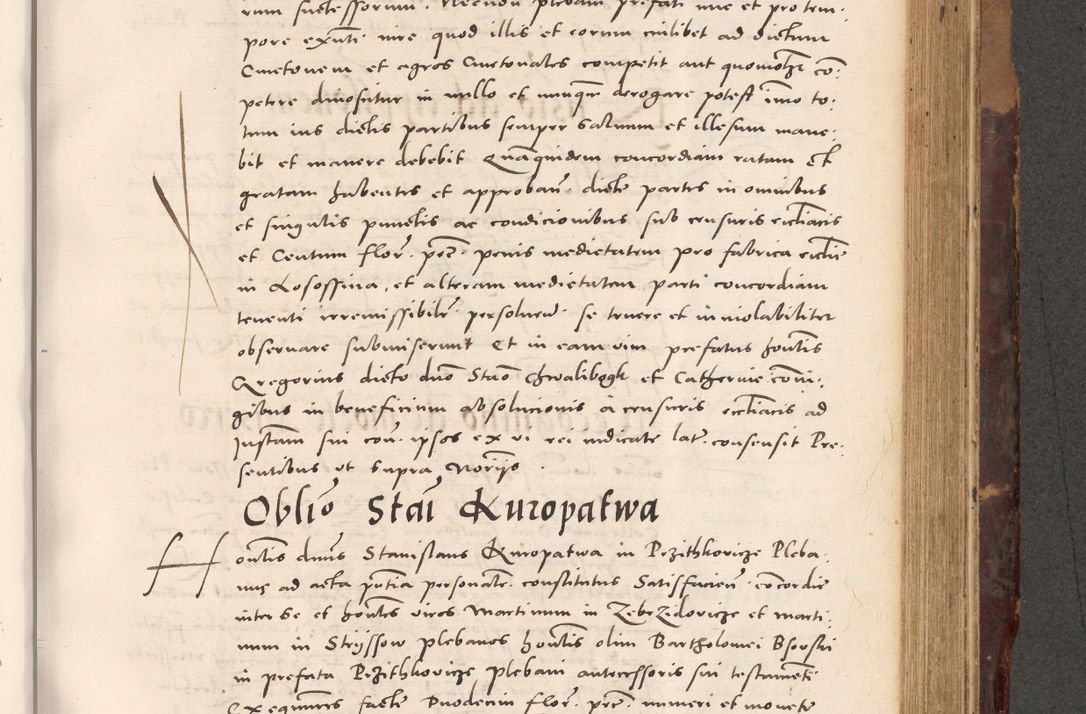 rum successorum. Necnon plebani prefati nunc et pro tem-
pore existentis iure quod illis et eorum cuilibet ad dictum
Cmetonem et agros Cmetonales competit aut quomodolibet com-
petere dinoscitur in nullo et nunquam derogare potest immo to-
tum ius dictis partibus semper saluum et illesum mane-
bit et manere debebit Quamquidem concordiam ratam et
gratam habentes et approbantes dicte partes in omnibus
et singulis punctis ac condicionibus sub censuris ecclesiasticis
et Centum flor. pecc. penis medietatem pro fabrica ecclesie
in Losossina, et alteram medietatem parti concordiam
tenenti irremissibiliter persoluend. se tenere et inuiolabiliter
obseruare submiserunt Et in eam vim prefatus honestis
Gregorius dicto dno Stano Chwalibogk et Catherine coniu-
gibus in beneficium absolucionis a censuris ecclesiasticis ad
Instam sui con. ipsos ex vi rei iudicate lat. consensit Pre-
sentibus ut supra Norijs
Oblio Stai Kuropatwa
Honlis dnus Stanislaus Kuropatwa in Pezithkovicze Pleba-
nus ad acta pntia personalr. constitutus Satisfaciend. concordie
inter se et honles viros Martinum in Zebrzidovicze et marti-
num in Stryssow plebanos honlis olim Bartholomei Bsovski
in prefata Pezithkovicze plebani antecessoris sui testamenti
Exequutores facte Duodecim flor. pecc. numeri et monete